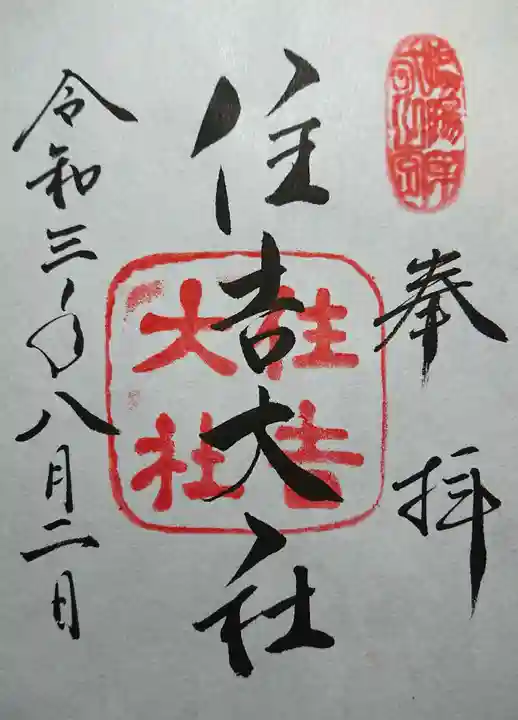 奉拝
住吉大社
住吉大社
令和三年八月二日